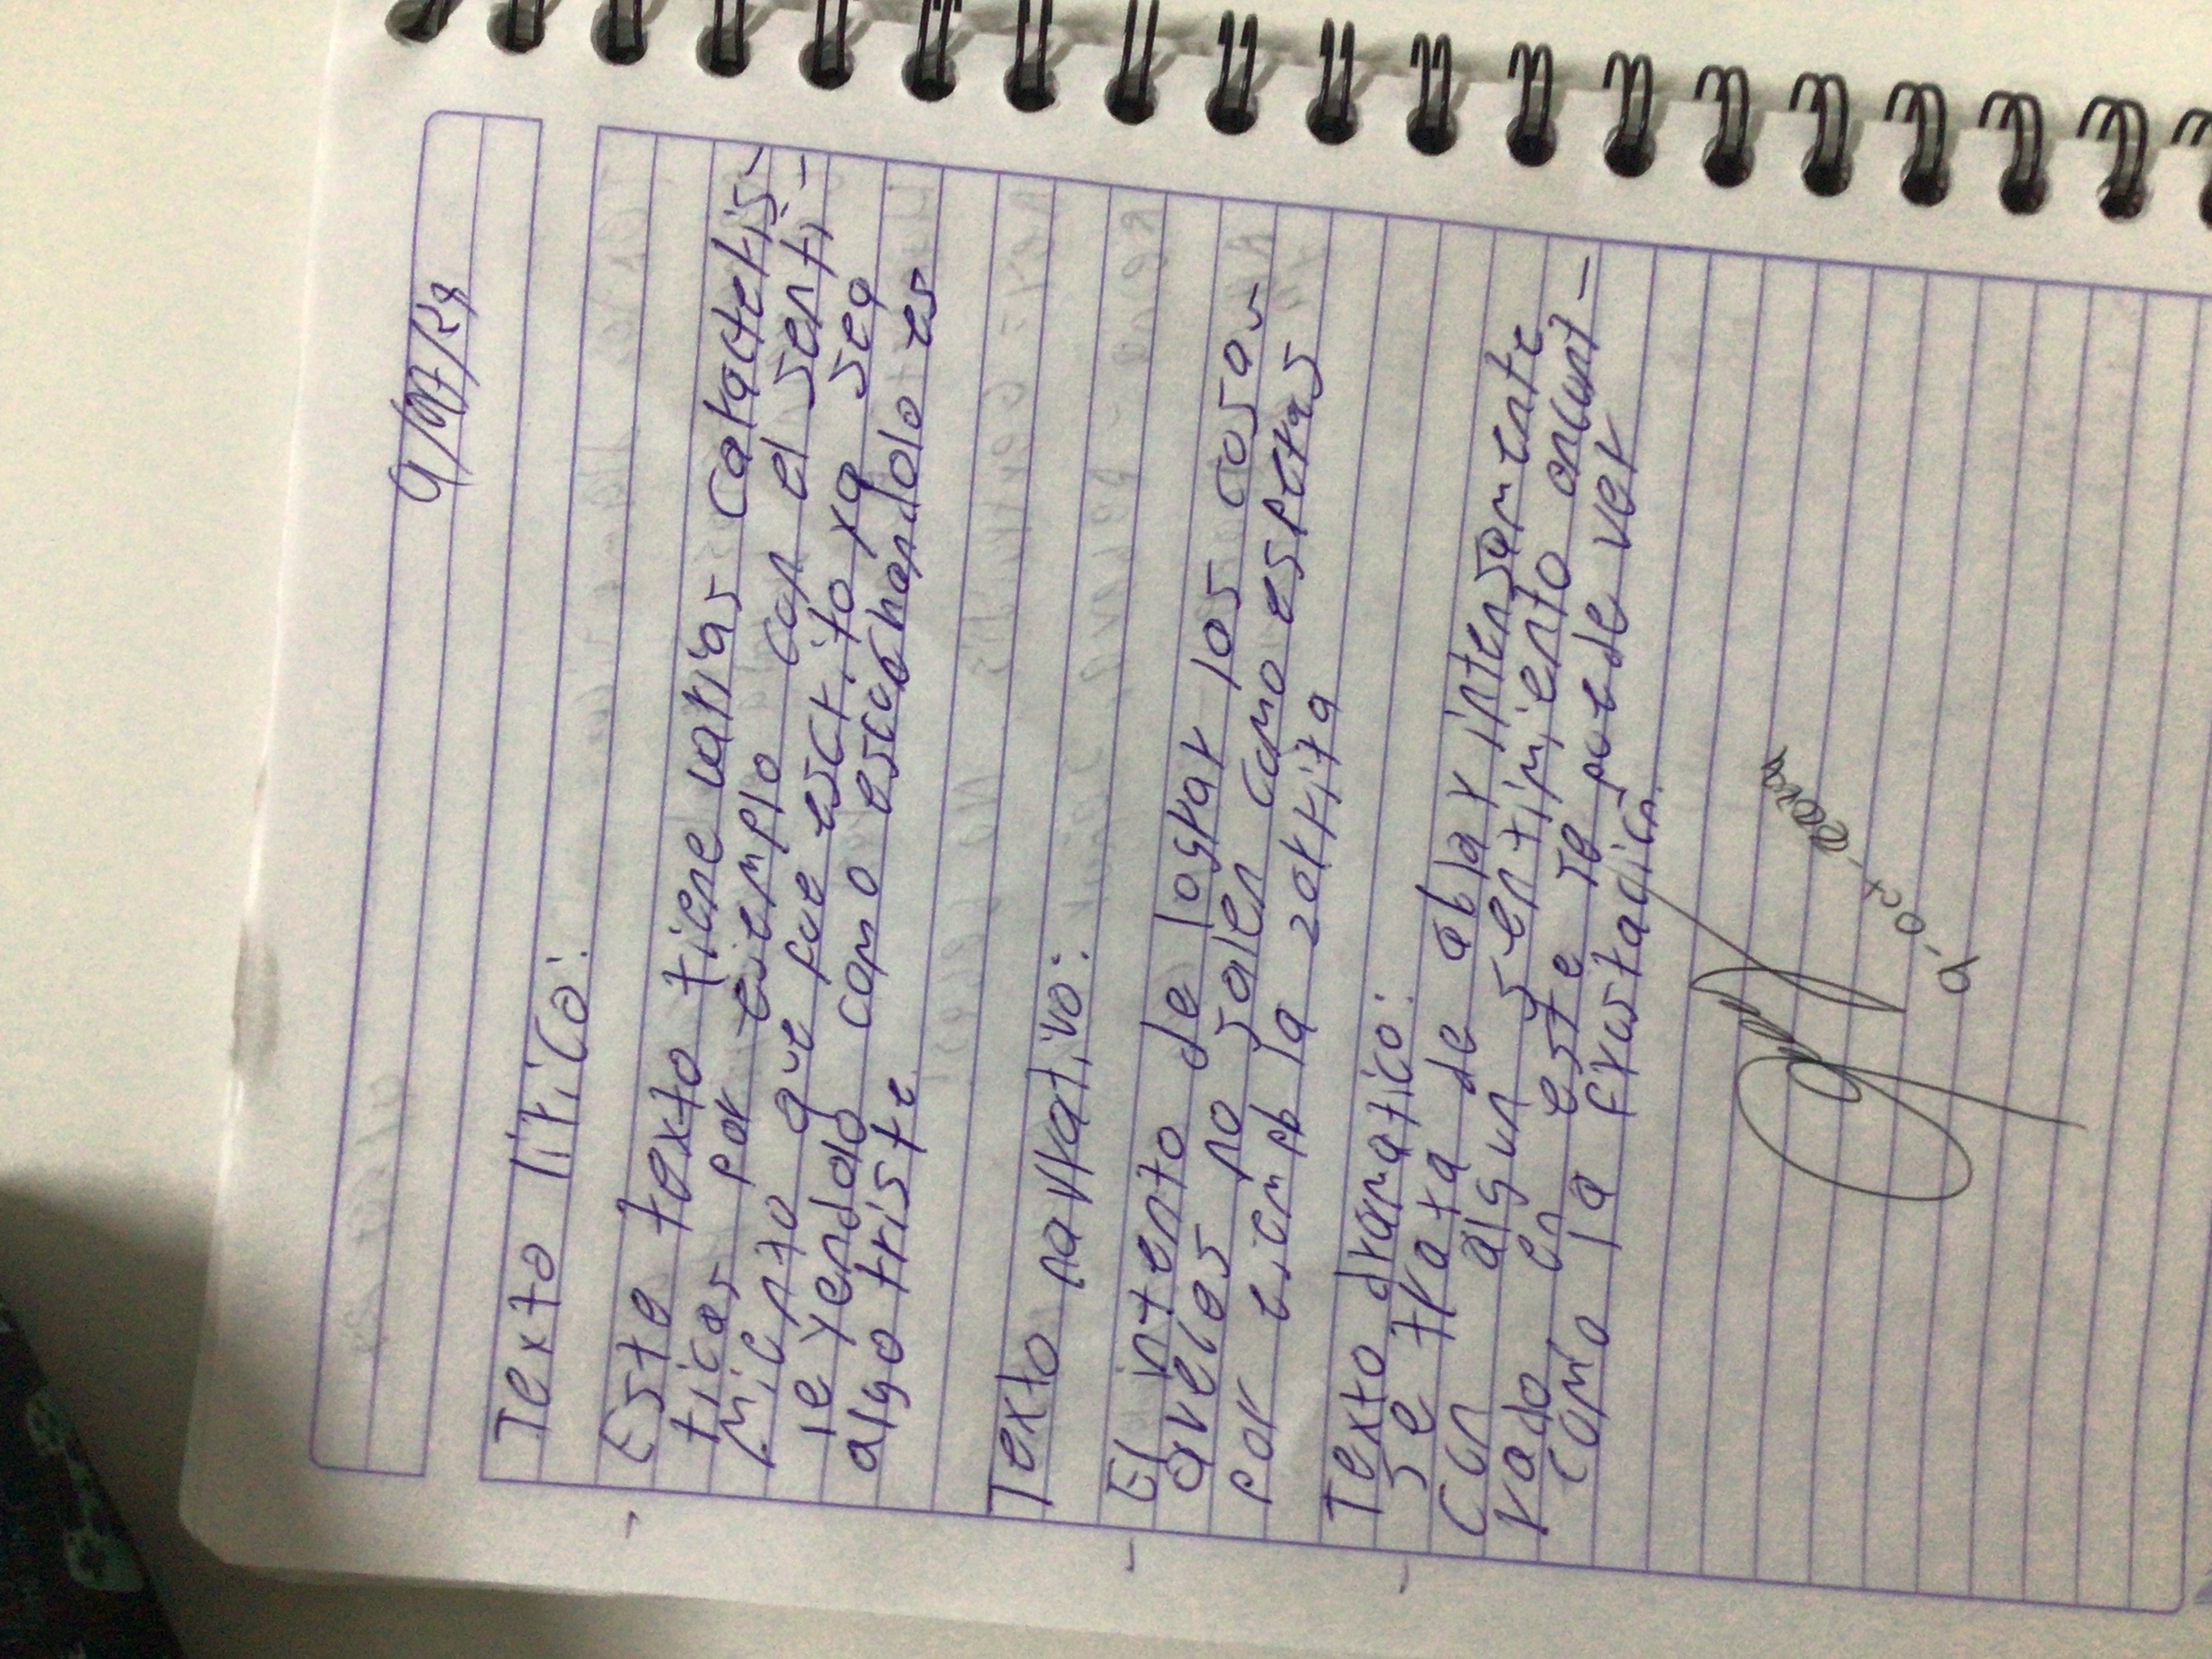 Texto lírico:
Este texto tiene varias caracterís-
ticas por ejemplo con el senti-
miento que fue escrito ya sea
leyendolo como escuchandolo es
algo triste
Texto narrativo:
El intento de lograr las cosas
aveces no salen como esperas
por ejemplo la zorrita
Texto dramático:
Se trata de ablar intensamente
con algun sentimiento encunt-
rado en este se puede ver
como la frustación